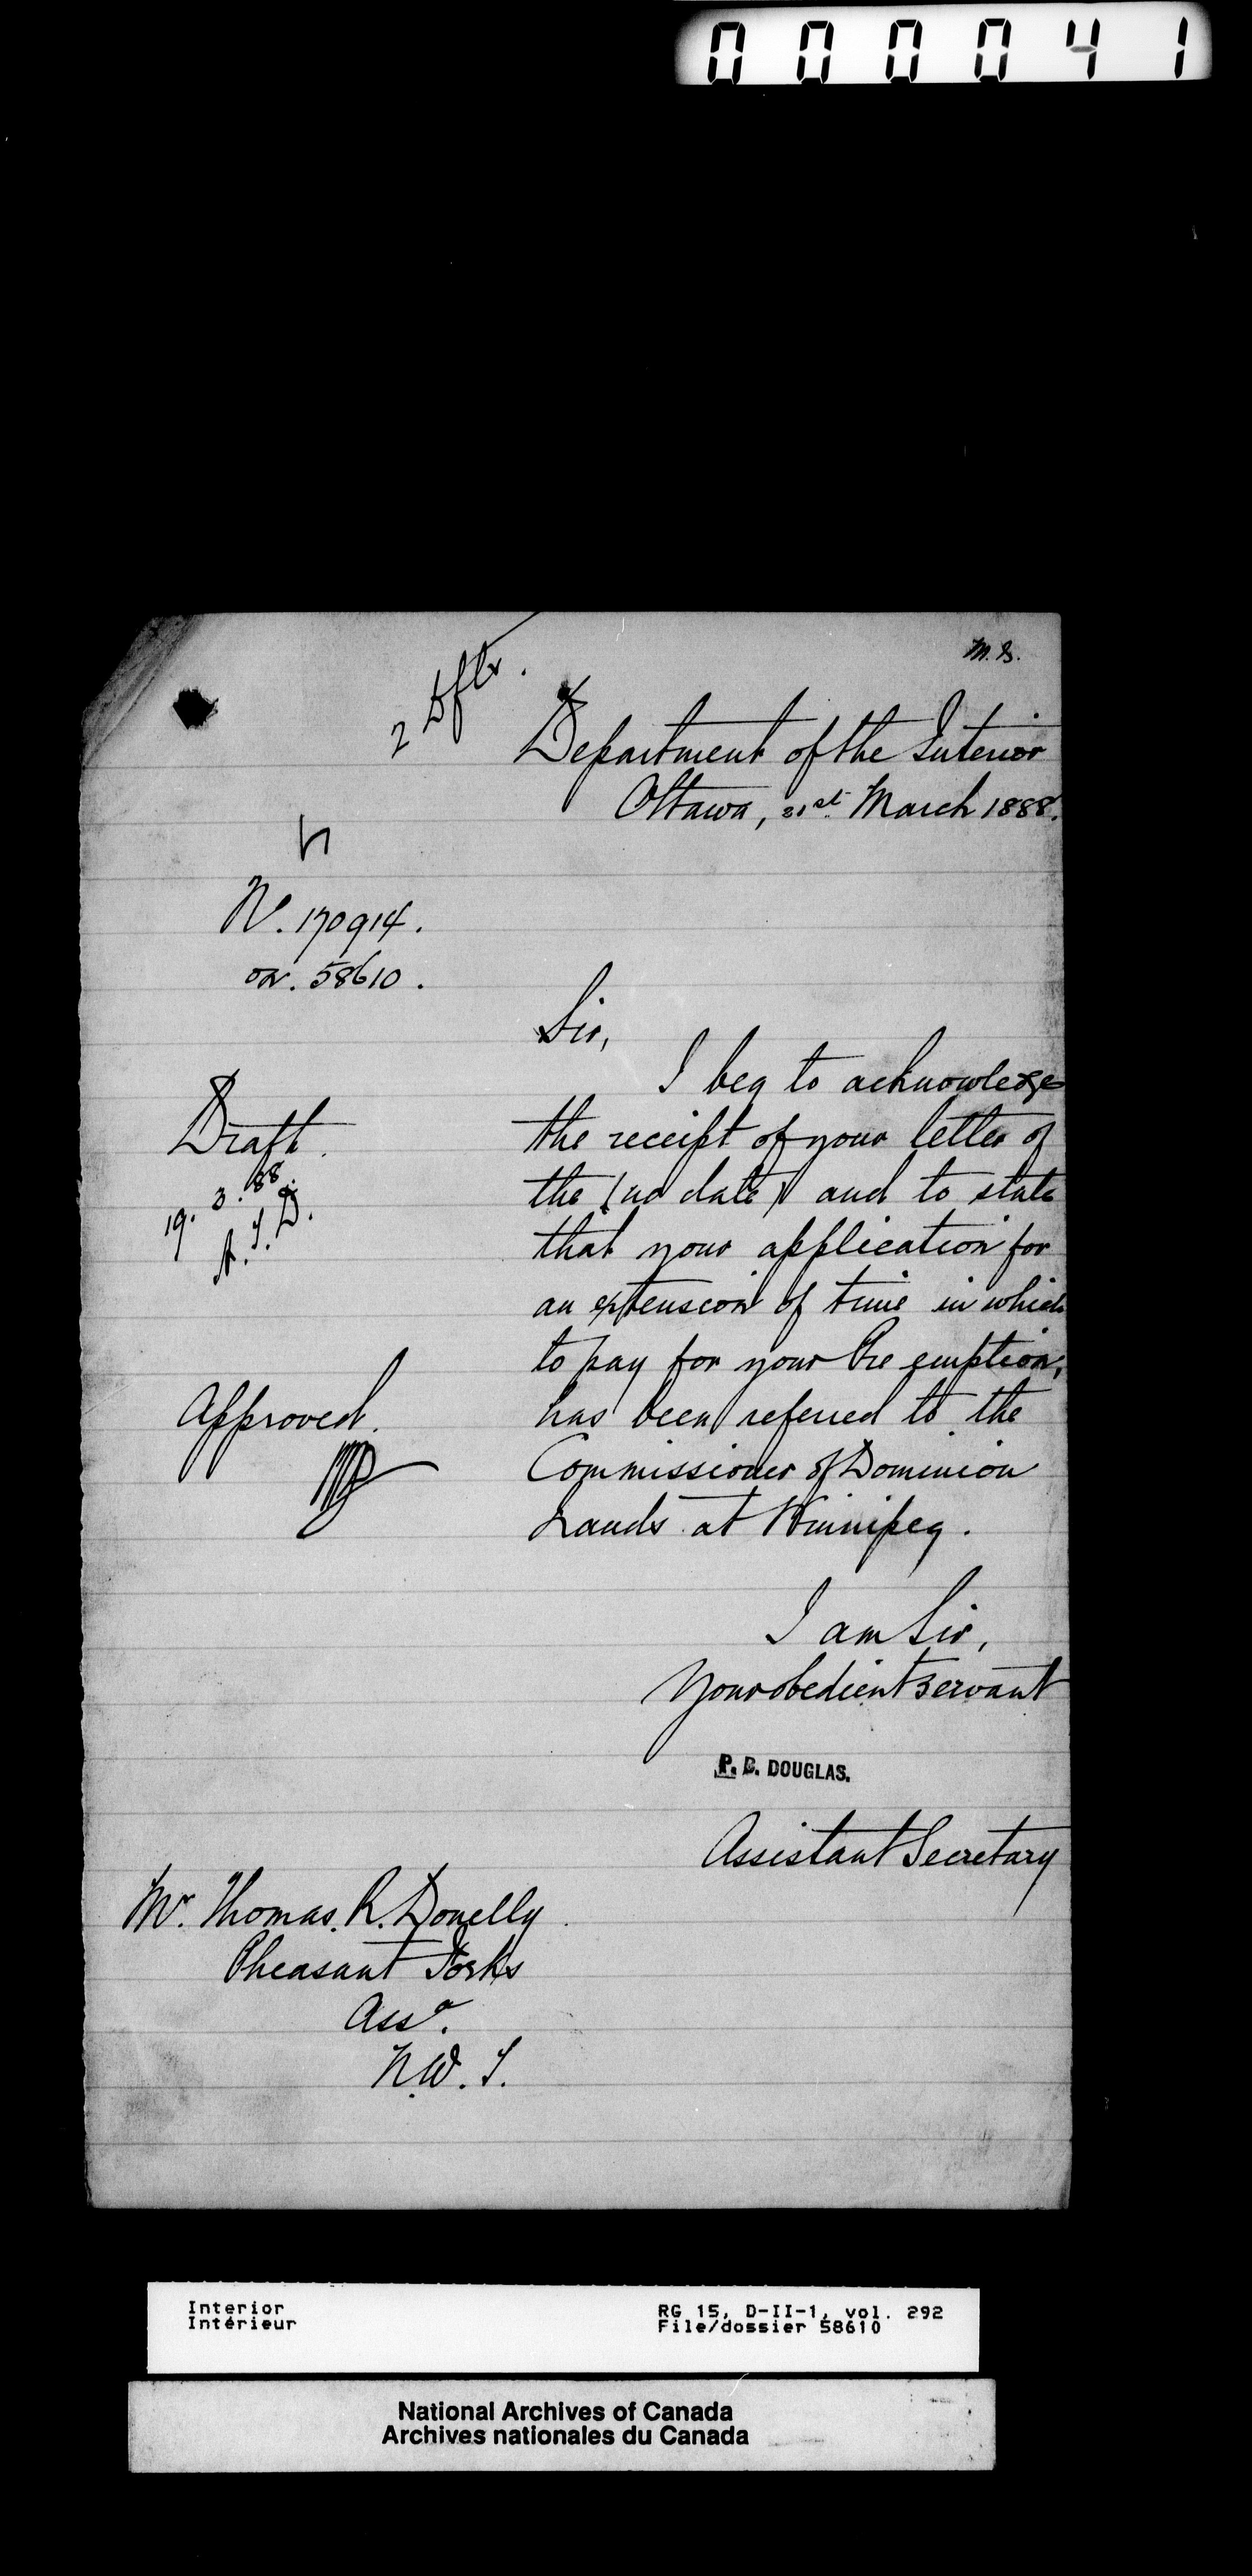 000041
M.B.
Department of the Interior
Ottawa, 31st March 1888.
No. 170914.
on. 58610.
Sir,
I beg to acknowledge
the receipt of your letter of
the (no date) and to state
that your application for
an extension of time in which
to pay for your Pre emption,
has been referred to the
Commissioner of Dominion
Lands at Winnipeg.
Draft.
19. 3. 88.
Approved.
I am Sir,
Your obedient servant
P. B. DOUGLAS.
Assistant Secretary
Mr. Thomas. R. Donelly
Pheasant Forks
Assa.
N.W.T.
Interior
Intérieur
RG 15, D-II-1, vol. 292
File/dossier 58610
National Archives of Canada
Archives nationales du Canada